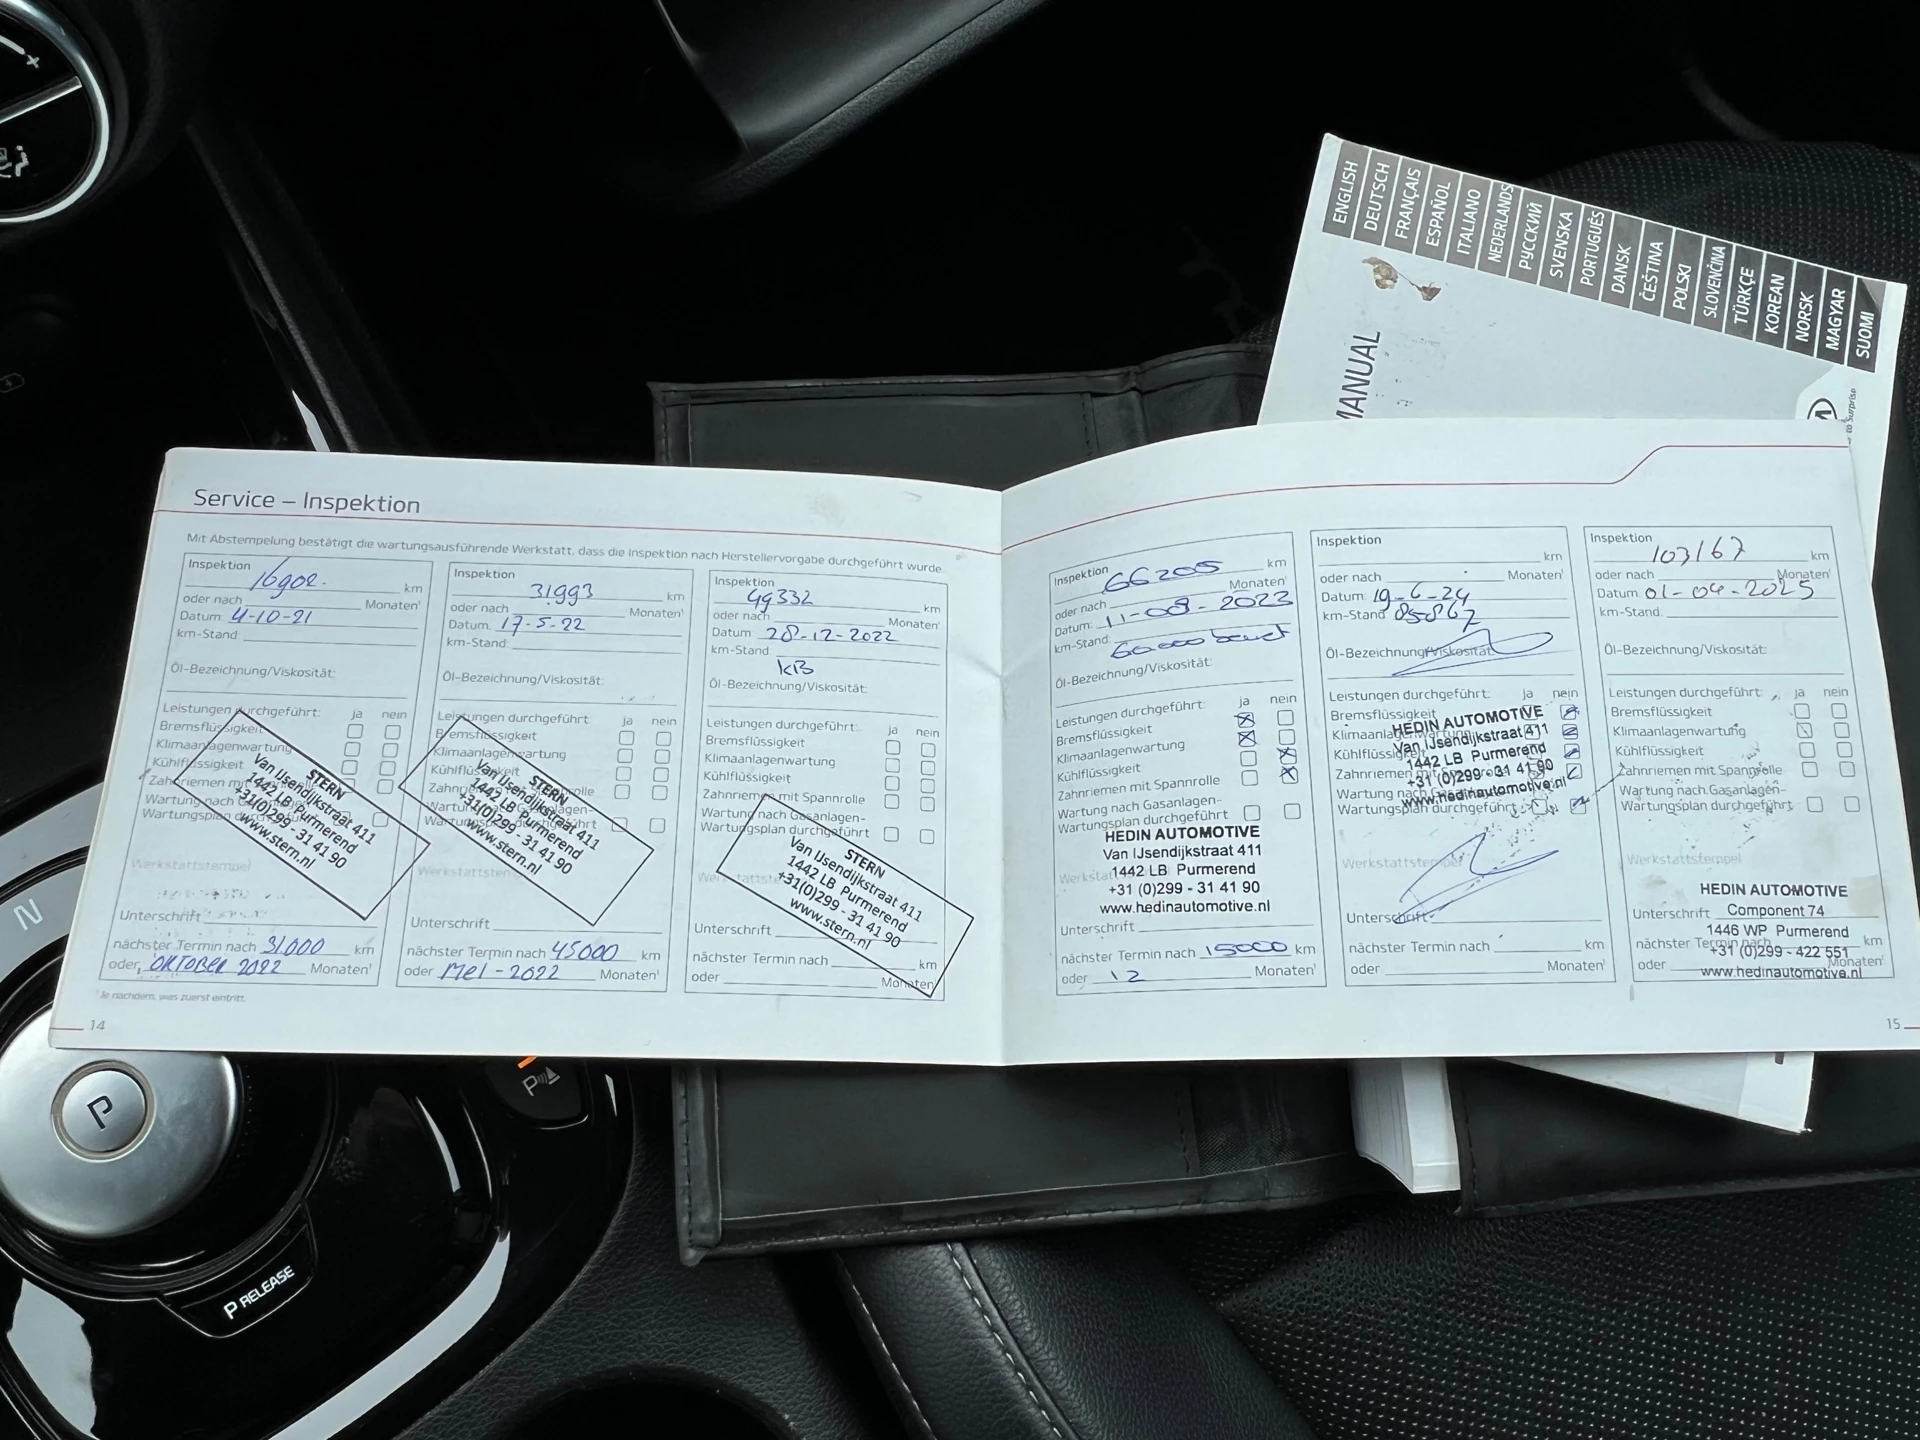 ENGLISH
DEUTSCH
FRANÇAIS
ESPAÑOL
ITALIANO
NEDERLANDS
РУССКИЙ
SVENSKA
PORTUGUÊS
DANSK
ČEŠTINA
POLSKI
SLOVENČINA
TÜRKÇE
KOREAN
NORSK
MAGYAR
SUOMI
MANUAL
to Surprise
Service – Inspektion
Mit Abstempelung bestätigt die wartungsausführende Werkstatt, dass die Inspektion nach Herstellervorgabe durchgeführt wurde.
Inspektion
16902. km
oder nach Monaten¹
Datum 4-10-21
km-Stand
Öl-Bezeichnung/Viskosität:
Leistungen durchgeführt: ja nein
Bremsflüssigkeit
Klimaanlagenwartung
Kühlflüssigkeit
Zahnriemen mit
Wartung nach
Wartungsplan
STERN
Van IJsendijkstraat 411
1442 LB Purmerend
+31(0)299 - 31 41 90
www.stern.nl
Werkstattstempel
Unterschrift
nächster Termin nach 31000 km
oder OKTOBER 2022 Monaten¹
¹ Je nachdem, was zuerst eintritt.
14
Inspektion
31993 km
oder nach Monaten¹
Datum: 17-5-22
km-Stand:
Öl-Bezeichnung/Viskosität:
Leistungen durchgeführt: ja nein
Bremsflüssigkeit
Klimaanlagenwartung
Kühlflüssigkeit
STERN
Van IJsendijkstraat 411
1442 LB Purmerend
+31(0)299 - 31 41 90
www.stern.nl
Unterschrift
nächster Termin nach 45000 km
oder MEI - 2022 Monaten¹
Inspektion
49332 km
oder nach Monaten¹
Datum 28-12-2022
km-Stand:
KB
Öl-Bezeichnung/Viskosität:
Leistungen durchgeführt: ja nein
Bremsflüssigkeit
Klimaanlagenwartung
Kühlflüssigkeit
Zahnriemen mit Spannrolle
Wartung nach Gasanlagen-
Wartungsplan durchgeführt
STERN
Van IJsendijkstraat 411
1442 LB Purmerend
+31(0)299 - 31 41 90
www.stern.nl
Unterschrift
nächster Termin nach km
oder Monaten¹
Inspektion 66205 km
oder nach Monaten¹
Datum: 11-08-2023
km-Stand: 60.000 beurt
Öl-Bezeichnung/Viskosität:
Leistungen durchgeführt: ja nein
Bremsflüssigkeit
Klimaanlagenwartung
Kühlflüssigkeit
Zahnriemen mit Spannrolle
Wartung nach Gasanlagen-
Wartungsplan durchgeführt
HEDIN AUTOMOTIVE
Van IJsendijkstraat 411
1442 LB Purmerend
+31 (0)299 - 31 41 90
www.hedinautomotive.nl
Unterschrift
nächster Termin nach 15000 km
oder 12 Monaten¹
Inspektion
km
oder nach Monaten¹
Datum: 19-6-24
km-Stand 85867
Öl-Bezeichnung/Viskosität:
Leistungen durchgeführt: ja nein
Bremsflüssigkeit
HEDIN AUTOMOTIVE
Van IJsendijkstraat 411
1442 LB Purmerend
+31 (0)299- 31 41 90
www.hedinautomotive.nl
Wartungsplan durchgeführt
Werkstattstempel
Unterschrift
nächster Termin nach km
oder Monaten¹
Inspektion
103167 km
oder nach Monaten¹
Datum 01-04-2025
km-Stand:
Öl-Bezeichnung/Viskosität:
Leistungen durchgeführt: ja nein
Bremsflüssigkeit
Klimaanlagenwartung
Kühlflüssigkeit
Zahnriemen mit Spannrolle
Wartung nach Gasanlagen-
Wartungsplan durchgeführt
Werkstattstempel
HEDIN AUTOMOTIVE
Unterschrift Component 74
1446 WP Purmerend
nächster Termin nach km
+31 (0)299 - 422 551
oder Monaten¹
www.hedinautomotive.nl
15
N
P
P RELEASE
P